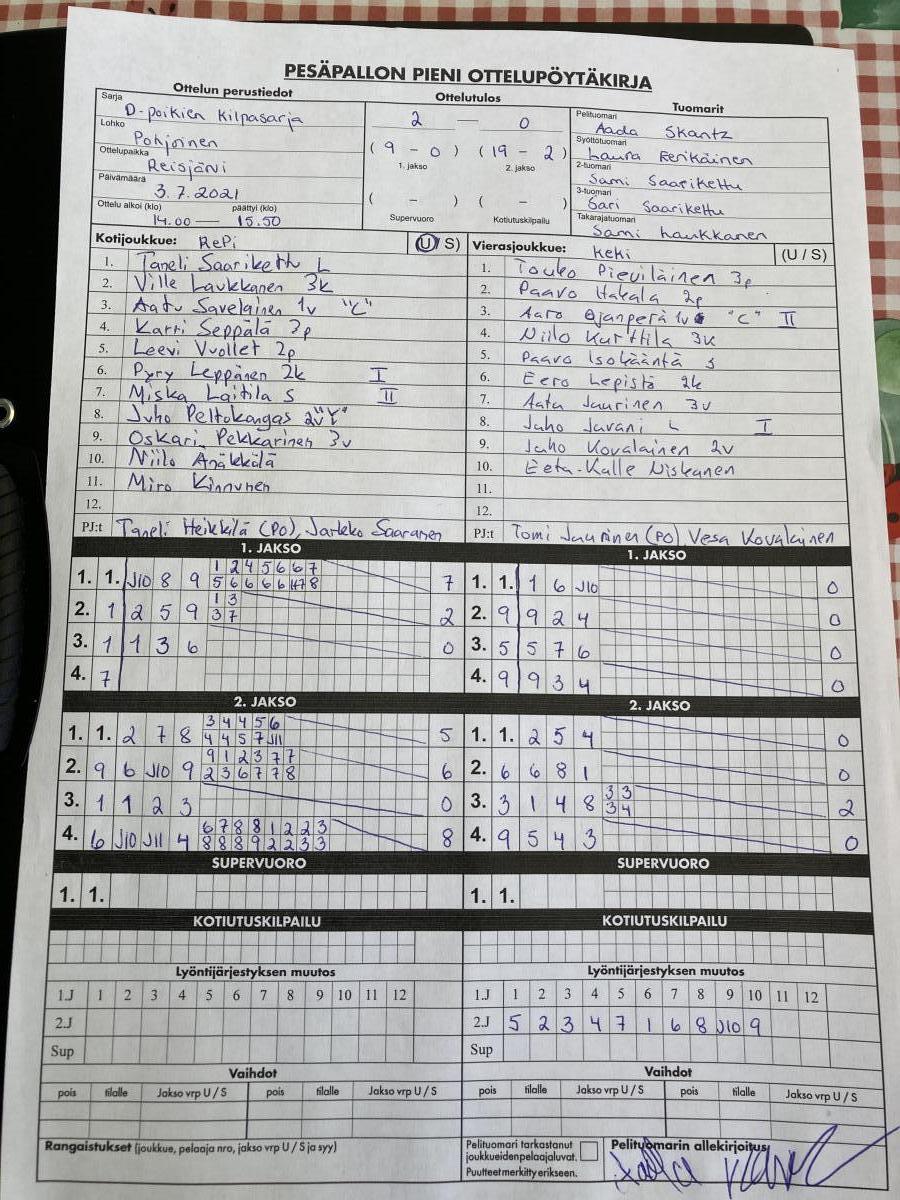 PESÄPALLON PIENI OTTELUPÖYTÄKIRJA
Ottelun perustiedot
Sarja
D-poikien Kilpasarja
Lohko
Pohjoinen
Ottelupaikka
Reisjärvi
Päivämäärä
3.7.2021
Ottelu alkoi (klo) päättyi (klo)
14.00 — 15.50
Ottelutulos
2 — 0
( 9 - 0 ) ( 19 - 2 )
1. jakso 2. jakso
( - ) ( - )
Supervuoro Kotiutuskilpailu
Tuomarit
Pelituomari
Aada Skantz
Syöttötuomari
Laura Eerikäinen
2-tuomari
Sami Saarikettu
3-tuomari
Sari Saarikettu
Takarajatuomari
Sami Laukkanen
Kotijoukkue: RePi (U/ S)
1. Taneli Saarikettu L
2. Ville Laukkanen 3k
3. Aatu Savelainen 1v "C"
4. Karri Seppälä 3p
5. Leevi Vuollet 2p
6. Pyry Leppänen 2k I
7. Miska Laitila S II
8. Juho Peltokangas 2v
9. Oskari Pekkarinen 3v
10. Niilo Änäkkälä
11. Miro Kinnunen
12.
PJ:t Taneli Heikkilä (PO), Jarkko Saaranen
Vierasjoukkue: KeKi (U / S)
1. Touko Pieviläinen 3p
2. Paavo Hakala 2p
3. Aaro Ojanperä 1v "C" II
4. Niilo Kurttila 3k
5. Paavo Isokääntä S
6. Eero Lepistö 2k
7. Aatu Jaurinen 3v
8. Juho Juvani L I
9. Juho Kovalainen 2v
10. Eeta-Kalle Niskanen
11.
12.
PJ:t Tomi Jaurinen (PO) Vesa Kovalainen
1. JAKSO
1. 1. J10 8 9 7
1 2 4 5 6 6 7
5 6 6 6 6 H7 8
2. 1 2 5 9 2
1 3
3 7
3. 1 1 3 6 0
4. 7
1. JAKSO
1. 1. 1 6 J10 0
2. 9 9 2 4 0
3. 5 5 7 6 0
4. 9 9 3 4 0
2. JAKSO
1. 1. 2 7 8 5
3 4 4 5 6
4 4 5 7 J11
2. 9 6 J10 9 6
9 1 2 3 7 7
2 3 6 7 7 8
3. 1 1 2 3 0
4. 6 J10 J11 4 8
6 7 8 8 1 2 2 3
8 8 8 9 2 2 3 3
2. JAKSO
1. 1. 2 5 4 0
2. 6 6 8 1 0
3. 3 1 4 8 2
3 3
3 4
4. 9 5 4 3 0
SUPERVUORO
1. 1.
SUPERVUORO
1. 1.
KOTIUTUSKILPAILU
KOTIUTUSKILPAILU
Lyöntijärjestyksen muutos
1.J 1 2 3 4 5 6 7 8 9 10 11 12
2.J
Sup
Lyöntijärjestyksen muutos
1.J 1 2 3 4 5 6 7 8 9 10 11 12
2.J 5 2 3 4 7 1 6 8 J10 9
Sup
Vaihdot
pois tilalle Jakso vrp U / S pois tilalle Jakso vrp U / S
Vaihdot
pois tilalle Jakso vrp U / S pois tilalle Jakso vrp U / S
Rangaistukset (joukkue, pelaaja nro, jakso vrp U / S ja syy)
Pelituomari tarkastanut
joukkueiden pelaajaluvat.
Puutteet merkitty erikseen.
Pelituomarin allekirjoitus